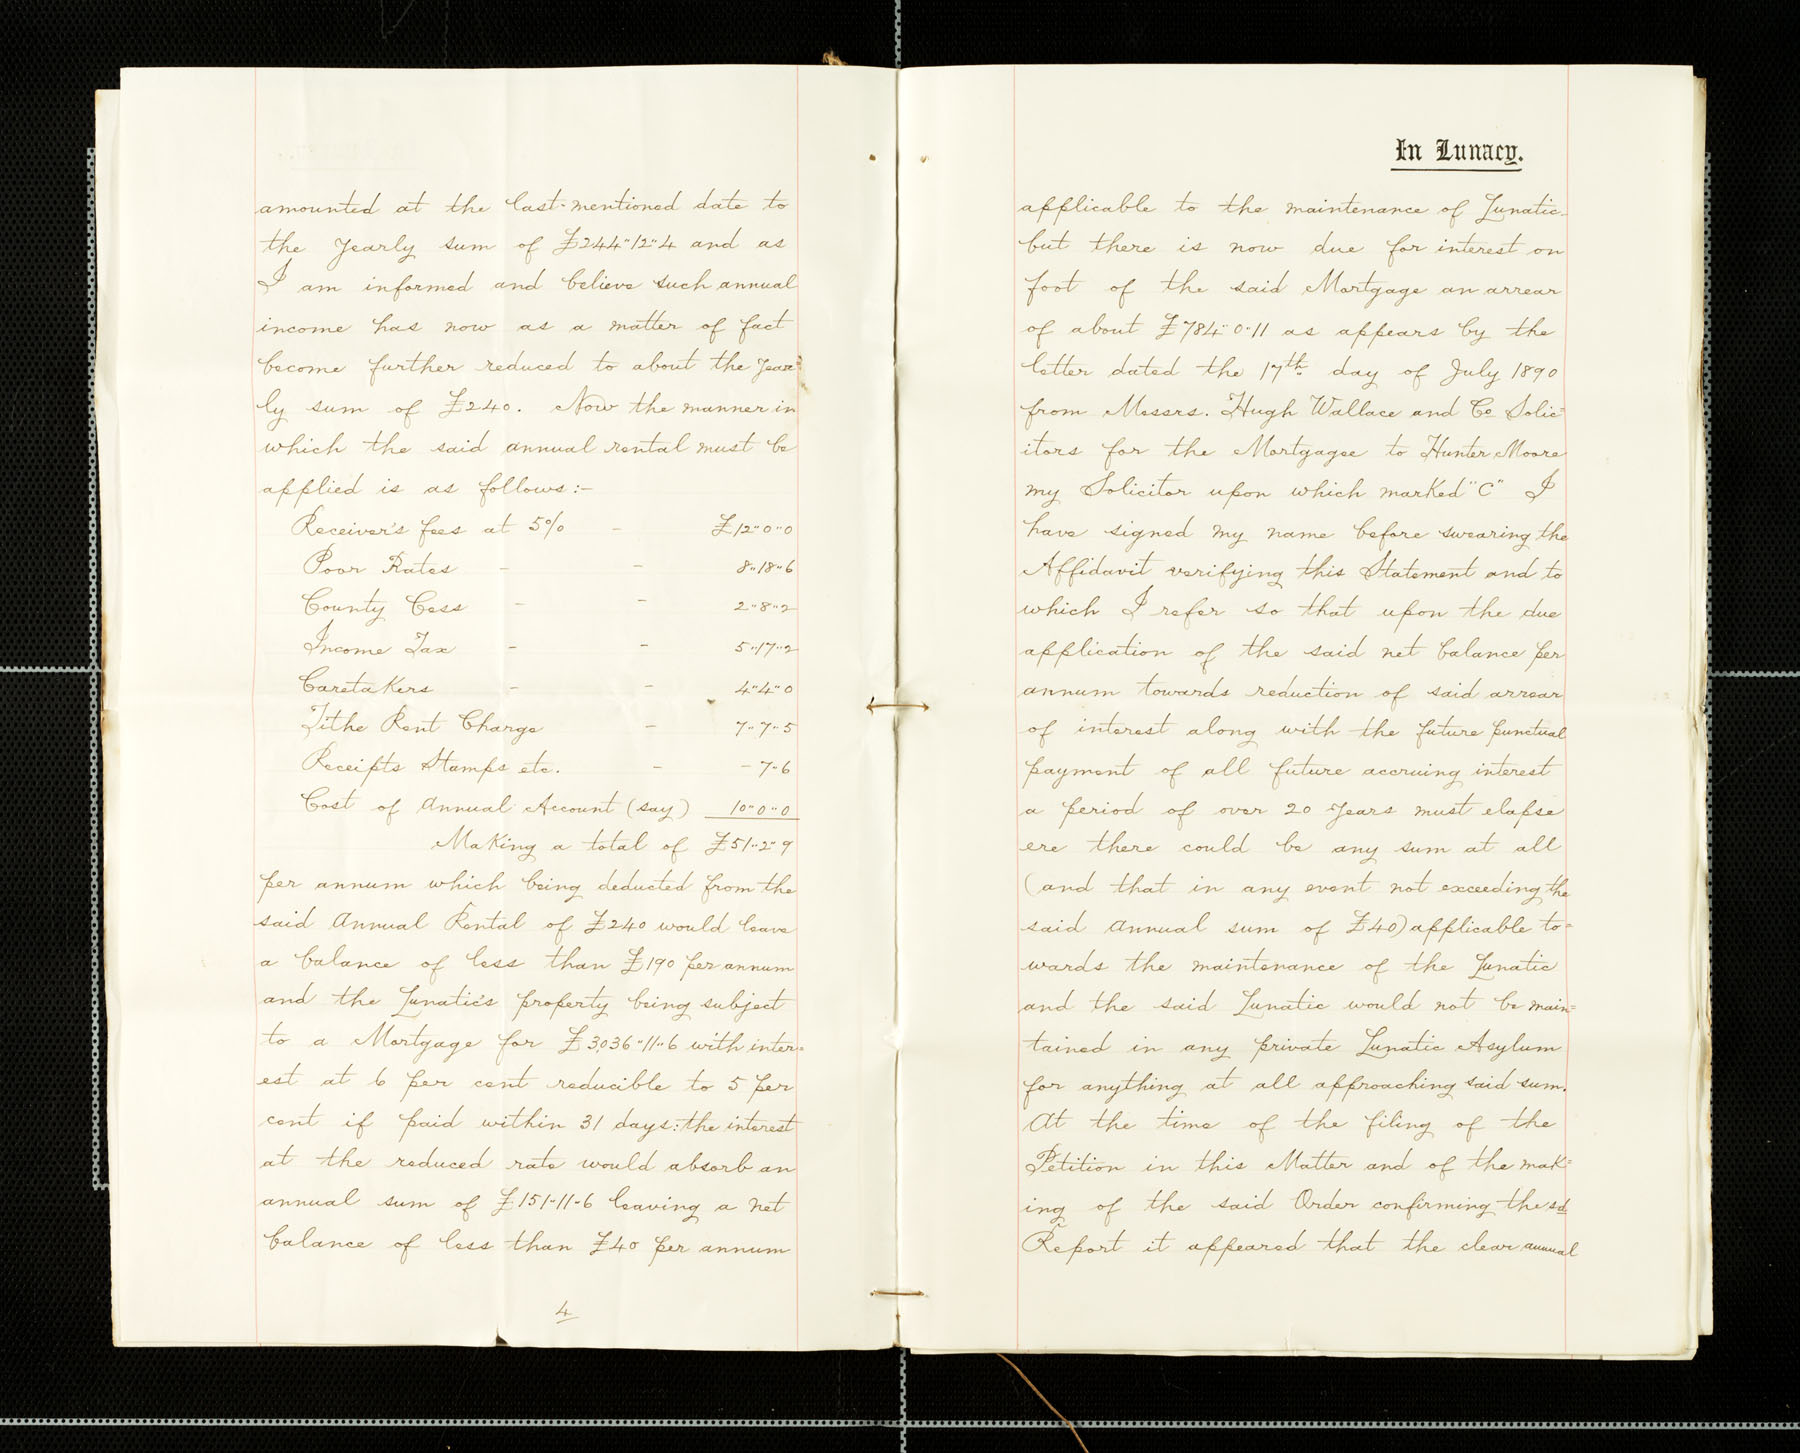 amounted at the last-mentioned date to
the yearly sum of £244"12"4 and as
I am informed and believe such annual
income has now as a matter of fact
become further reduced to about the year=
ly sum of £240. Now the manner in
which the said annual rental must be
applied is as follows:-
Receiver's fees at 5% - £12"0"0
Poor Rates - - 8"18"6
County Cess - - 2"8"2
Income Tax - - 5"17"2
Caretakers - - 4"4"0
Tithe Rent Charge - 7"7"5
Receipts Stamps etc. - - 7"6
Cost of Annual Account (say) 10"0"0
Making a total of £51"2"9
per annum which being deducted from the
said Annual Rental of £240 would leave
a balance of less than £190 per annum
and the Lunatic's property being subject
to a Mortgage for £3,036"11"6 with inter=
est at 6 per cent reducible to 5 per
cent if paid within 31 days: the interest
at the reduced rate would absorb an
annual sum of £151-11-6 leaving a net
balance of less than £40 per annum
4
In Lunacy.
applicable to the maintenance of Lunatic
but there is now due for interest on
foot of the said Mortgage an arrear
of about £784"0"11 as appears by the
letter dated the 17th day of July 1890
from Messrs. Hugh Wallace and Co Solic=
itors for the Mortgagee to Hunter Moore
my Solicitor upon which marked "C" I
have signed my name before swearing the
Affidavit verifying this Statement and to
which I refer so that upon the due
application of the said net balance per
annum towards reduction of said arrear
of interest along with the future punctual
payment of all future accruing interest
a period of over 20 years must elapse
ere there could be any sum at all
(and that in any event not exceeding the
said annual sum of £40) applicable to=
wards the maintenance of the Lunatic
and the said Lunatic would not be main=
tained in any private Lunatic Asylum
for anything at all approaching said sum.
At the time of the filing of the
Petition in this Matter and of the mak=
ing of the said Order confirming the sd
Report it appeared that the clear annual